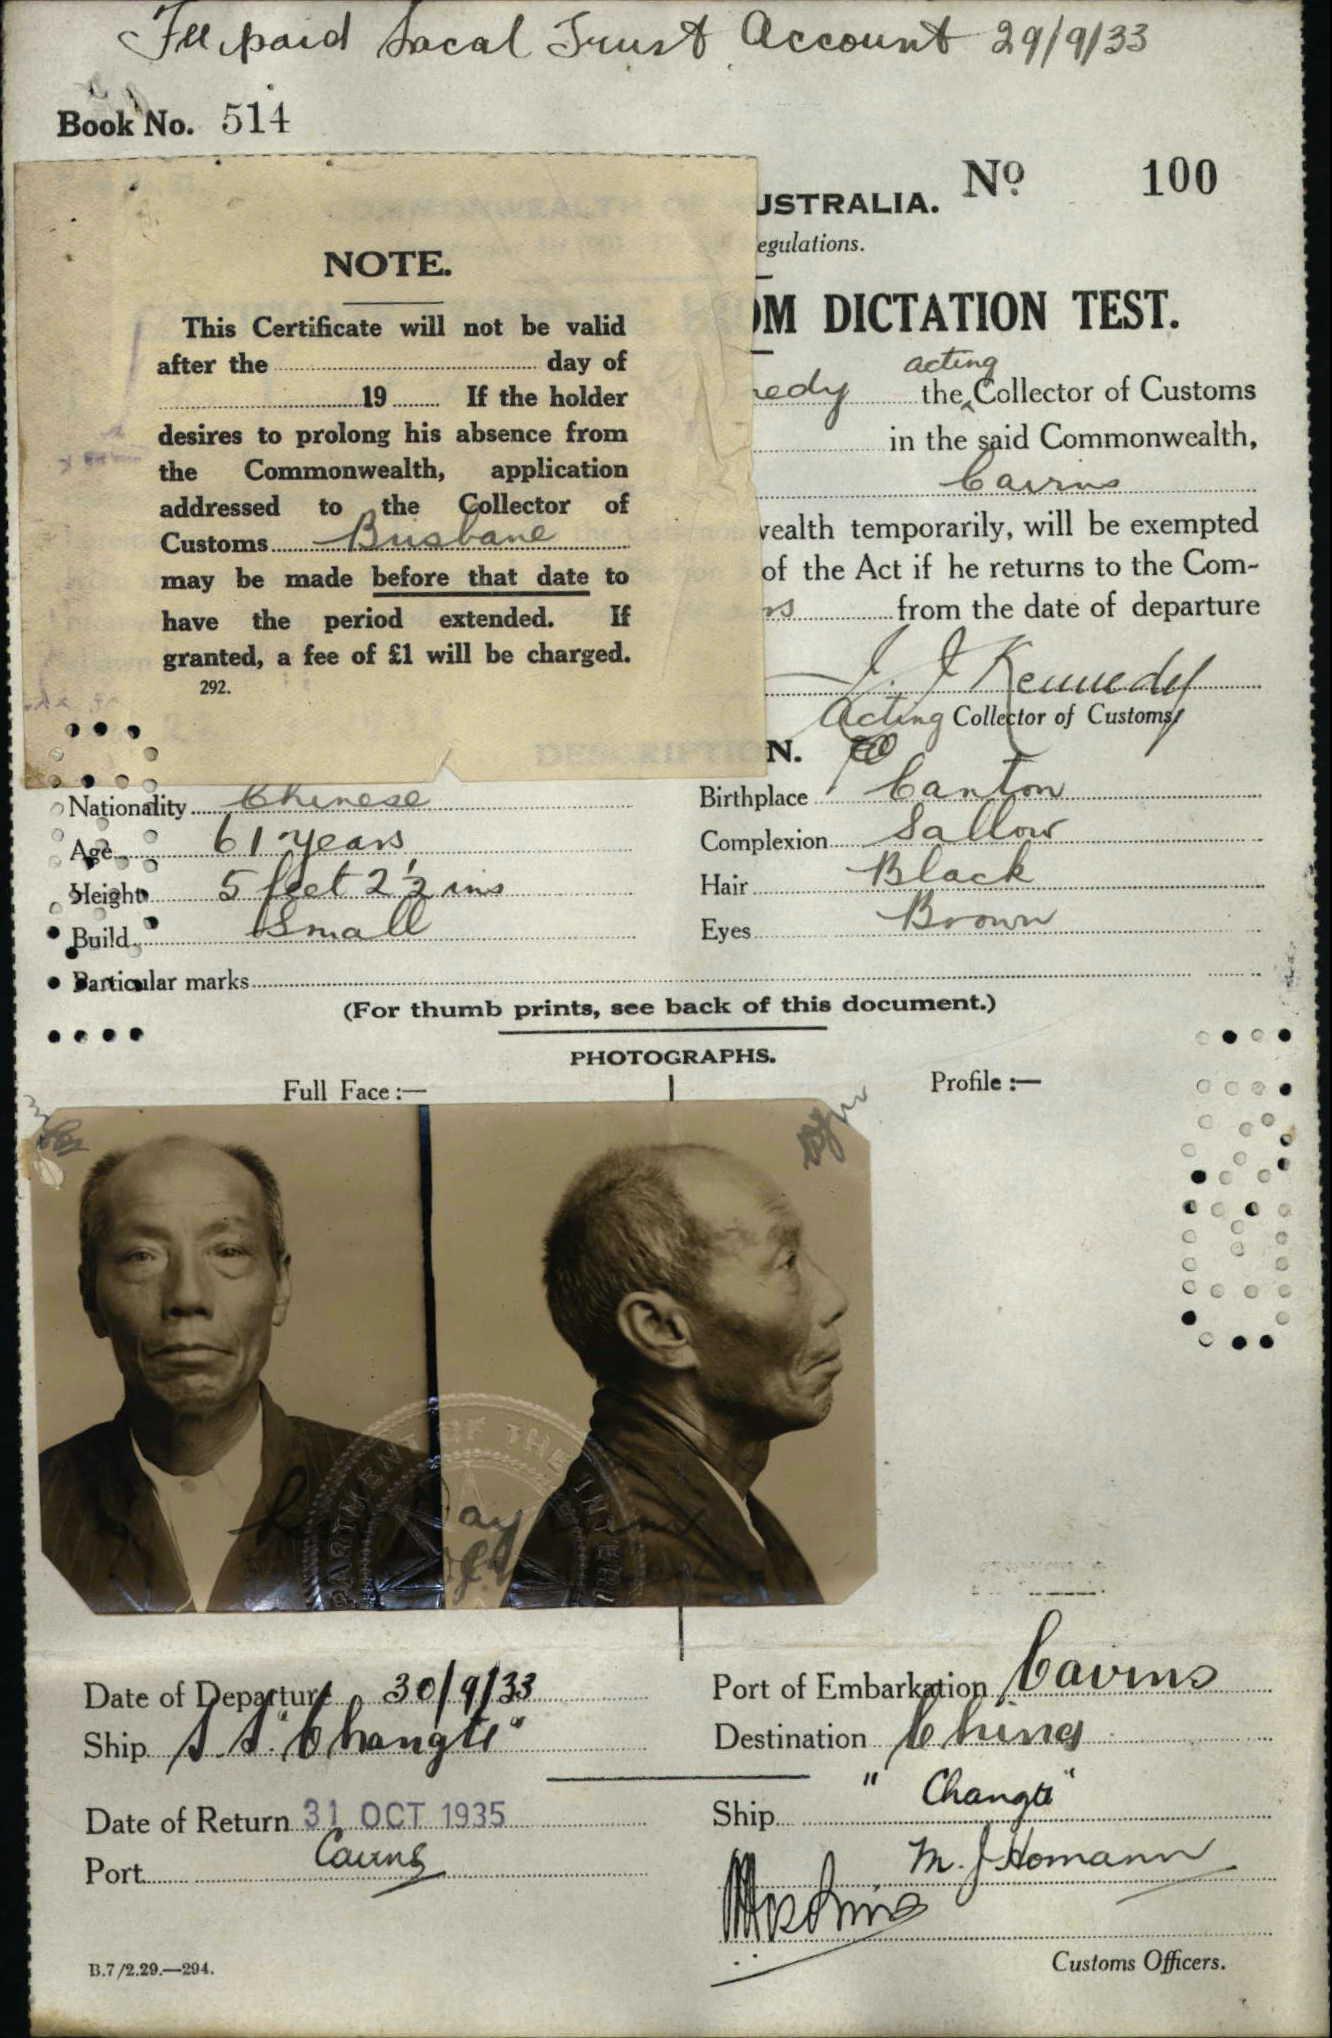 Fee paid Local Trust Account 29/9/33
Book No. 514
No 100
USTRALIA.
egulations.
OM DICTATION TEST.
NOTE.
This Certificate will not be valid
after the day of
19 If the holder
desires to prolong his absence from
the Commonwealth, application
addressed to the Collector of
Customs Brisbane
may be made before that date to
have the period extended. If
granted, a fee of £1 will be charged.
292.
acting
nedy the Collector of Customs
in the said Commonwealth,
Cairns
wealth temporarily, will be exempted
of the Act if he returns to the Com-
rs from the date of departure
J. J Kennedy
Acting Collector of Customs
DESCRIPTION.
Nationality Chinese Birthplace Canton
Age 61 years Complexion Sallow
Height 5 feet 2 1/2 ins Hair Black
Build Small Eyes Brown
Particular marks
(For thumb prints, see back of this document.)
PHOTOGRAPHS.
Full Face:— Profile:—
DEPARTMENT OF THE INTERI
Date of Departure 30/9/33 Port of Embarkation Cairns
Ship S.S. "Changte" Destination China
Date of Return 31 OCT 1935 Ship "Changte"
Port Cairns M. J Homann
Customs Officers.
B.7/2.29.—294.